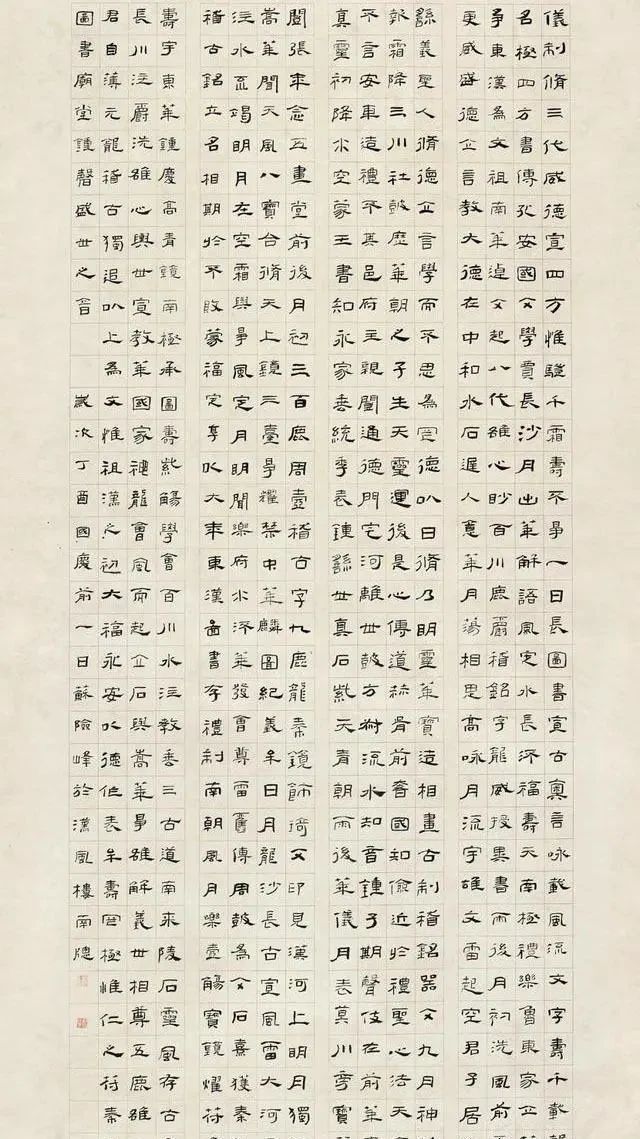 儀制脩三代威德宣四方惟駿千霜壽不爭一日長圖書宣古奧言咏載風流文字壽千載
名極四方書傳孔安國文學賈長沙月出華解語風定水長深福壽天南極禮樂魯東家立
爭東漢為文祖南華逴文起八代雄心眇百川鹿麝稽銘字龍威授異書而後月初洗風前
更咸盛德立言教大德在中和水石遲人意華月蕩相思高咏月流字雄文雷起空君子居
繇義聖人脩德立言學而不思為罔德以日脩乃明靈華寶造相畫古制稽銘器文九月神
報霜降三川社鼓歷華朝之子生天靈運後是心傳道赫骨前奢國知儉近於禮聖心法天
不言安車遠禮不其邑府主親閨通德門宅河離世鼓方樹流水知音鍾子期聲伎在前華
真靈初降尔空蒙王書知永家垂統季表鍾繇世真石紫天青朝雨後華儀月表莫川旁寶
閣張來念五畫堂前後月初三百鹿周壺稽古字九鹿龍秦鏡飾琦文印見漢河上明月獨
嵩華聞天風八寶台脩天上鏡三臺爭耀棽中華麟圖紀義年日月龍沙長古宣風雷大河
注水盃竭明月在空霜與爭風定月明聞樂府水深華發會尊雷舊傳周鼓為文石熹獲秦
稽古銘立名相期於不敗蒙福定享以大來東漢畫書存禮制南朝風月樂壺觴寶鏡燿符
壽宇東華鍾慶高青鏡南極承圖壽紫觴學會百川水注教垂三古道南來陵石靈風存古
長川注爵洗雄心與世宣教華國家禮龍會風而起立石與嵩華爭雄解義世相尊五鹿雄
君自薄元龍稽古獨追以上為文惟祖漢之初大福永安以德作表年壽罔極惟仁之符秦
圖書廟堂鍾磬盛世之音 歲次丁酉國慶前一日蘇險峰於漢風樓南牕